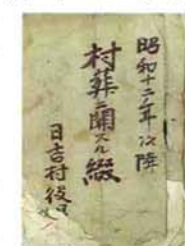 昭和十二年以降
村葬ニ関スル綴
日吉村役場